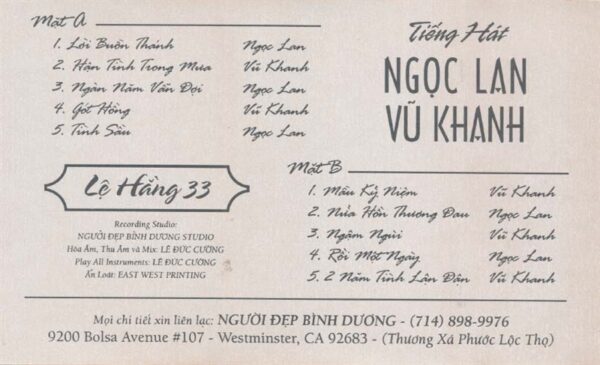 Mặt A
1. Lời Buồn Thánh Ngọc Lan
2. Hận Tình Trong Mưa Vũ Khanh
3. Ngàn Năm Vẫn Đợi Ngọc Lan
4. Gót Hồng Vũ Khanh
5. Tình Sầu Ngọc Lan
Tiếng Hát
NGỌC LAN
VŨ KHANH
Lệ Hằng 33
Recording Studio:
NGƯỜI ĐẸP BÌNH DƯƠNG STUDIO
Hòa Âm, Thu Âm và Mix: LÊ ĐỨC CƯỜNG
Play All Instruments: LÊ ĐỨC CƯỜNG
Ấn Loát: EAST WEST PRINTING
Mặt B
1. Màu Kỷ Niệm Vũ Khanh
2. Nửa Hồn Thương Đau Ngọc Lan
3. Ngậm Ngùi Vũ Khanh
4. Rồi Một Ngày Ngọc Lan
5. 2 Năm Tình Lận Đận Vũ Khanh
Mọi chi tiết xin liên lạc: NGƯỜI ĐẸP BÌNH DƯƠNG - (714) 898-9976
9200 Bolsa Avenue #107 - Westminster, CA 92683 - (Thương Xá Phước Lộc Thọ)